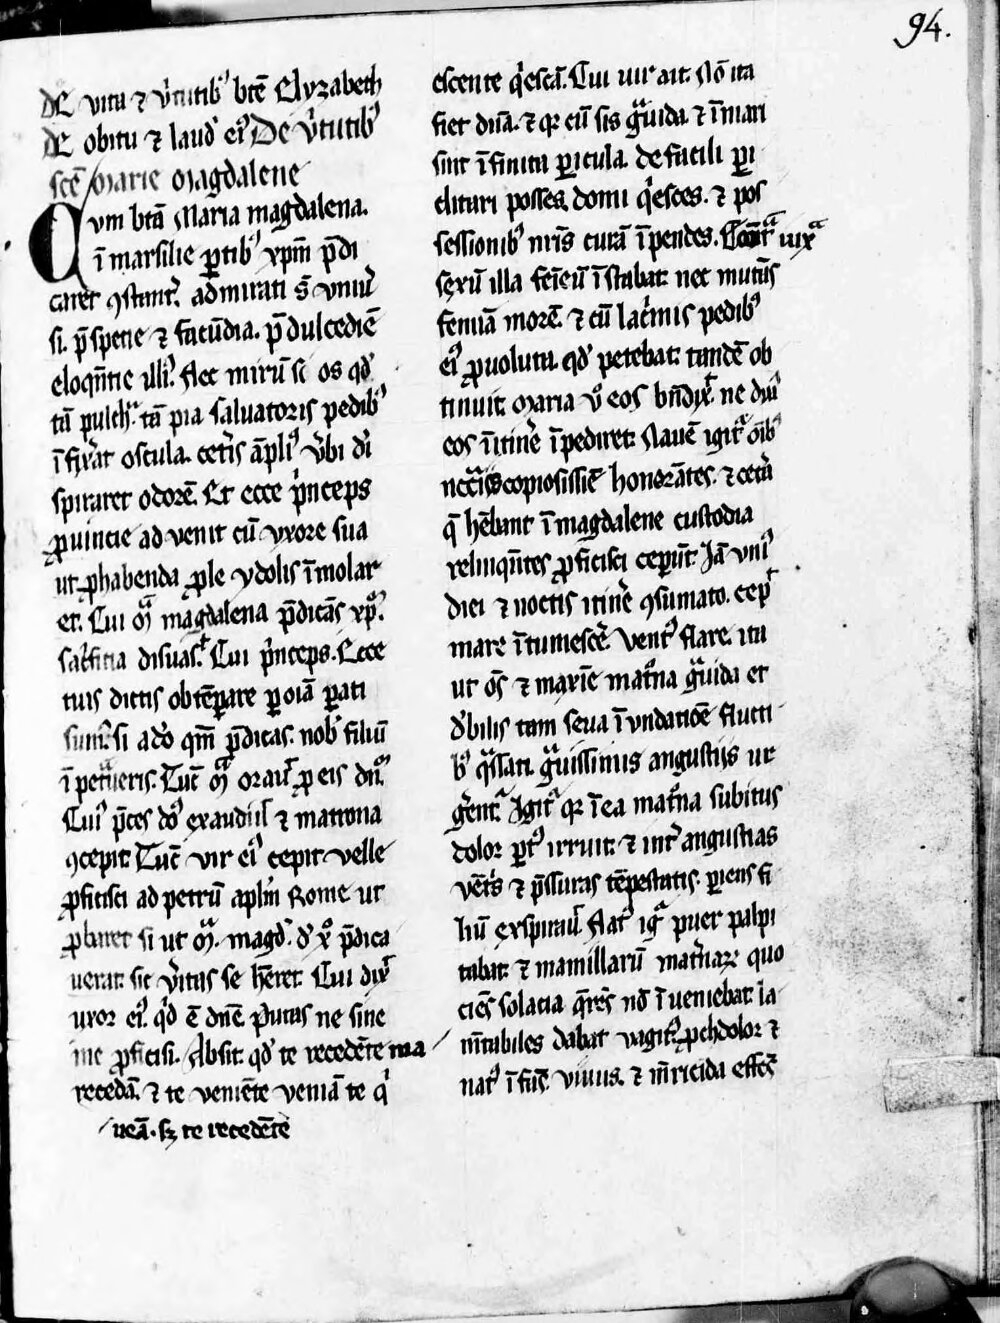 94.
de vita ⁊ v̾tutib᷒ bt̄e Elyzabeth
de obitu ⁊ laud̾ ei᷒ De v̾tutib᷒
sc̄e Marie Magdalene
Qvm bt̄a Maria magdalena.
ī marsilie ꝑtib᷒ xp̄m p̄di
caret ꝯstant̾. admirati s̄ vniu̾
si. p̄ spetie ⁊ facūdia. p̄ dulcediē
eloqn̄tie illi᷒. Nec mirū si os qd̾
tā pulch̾. tā pia saluatoris pedib᷒
īfix̾at oscula. cet̾is āpli᷒ v̾bi d̾i
spiraret odorē. Et ecce p̾nceps
ꝓuincie advenit cū vxore sua
ut ꝓ habenda ꝓle ydolis īmolar
et. Cui mͣ magdalena p̄dicās xp̄᷒.
sac̾fitia disuas̾. Cui p̾nceps. Ecce
tuis dictis obtēꝑare ꝑ oīa ꝑati
sum᷒. si a do̾ qm̄ p̄dicas. nob̾ filiū
īpetͣueris. Tūc mͣ orau̾ ꝓ eis dn̄᷒.
Cui᷒ p̄ces do᷒ exaudiu̾ ⁊ matrona
ꝯcepit. Tūc vir ei᷒ cepit velle
ꝓficisci ad petrū apl̄m Rome ut
ꝓbaret si ut mͣ. magd̾. d̾ xͦ p̄dica
uerat. sic v̾itas se h̄eret. Cui dix̾
uxor ei᷒. qͥd ē dn̄e. Putas ne sine
me ꝓficisi. Absit. qd̾ te recedēte n̄ia
recedā. ⁊ te veniēte veniā te qͥ
ueā. sꝫ te recedēte
escente qͥescā. Cui uir ait. Nō ita
fiet dn̄a. ⁊ qꝛ cū sis gͣuida. ⁊ ī mari
sint īfinita ꝑicula. de facili ꝑi
clitari posses. domi qͥesces. ⁊ pos
sessionib᷒ nr̄is curā īpendes. Contͣ uixͣ
sexū illa feīeū īstabat. nec mutās
femīā morē. ⁊ cū lac̾mis pedib᷒
ei᷒ ꝓuoluta. qd̾ petebat. tandē ob
tinuit. Maria v̾ eos bn̄dix̾. ne dn̄i
eos ī itin̾e īpediret. Nauē igit̾ oīb᷒
nēcͣiis copiosissīe honorātes. ⁊ cet̾a
q̄ hēbant ī magdalene custodia
relinqn̄tes ꝓficisci ceperūt. Jā vni᷒
diei ⁊ noctis itin̾e ꝯsumato. cep̾
mare ītumesc̾e. Vent᷒ flare. ita
ut oēs ⁊ maxīe mat̾na gͣuida et
d̾bilis tam seua īundatiōe flucti
b᷒ qͣssati. gͣuissimis angustijs ut
ḡent̾. Jgit̾ qꝛ ī ea mat̾na subitus
dolor ꝑt᷒ irruit. ⁊ int̾ angustias
vēt̾s ⁊ p̄ssuras tēpestatis. ꝑiens fi
liū exspirau̾. Nat᷒ igͣ puer palpi
tabat. ⁊ mamillarū mat̾naꝝ quo
ciēs solatia q̄rēs nō īueniebat. la
m̄tabiles dabat vagit᷒. ꝓch dolor ⁊
nat᷒ īfās. viuus. ⁊ m̄ricida effec̄